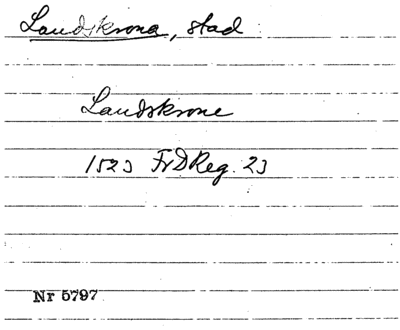 Landskrona, stad
Landskrone
1523 FrDReg. 23
Nr 5797